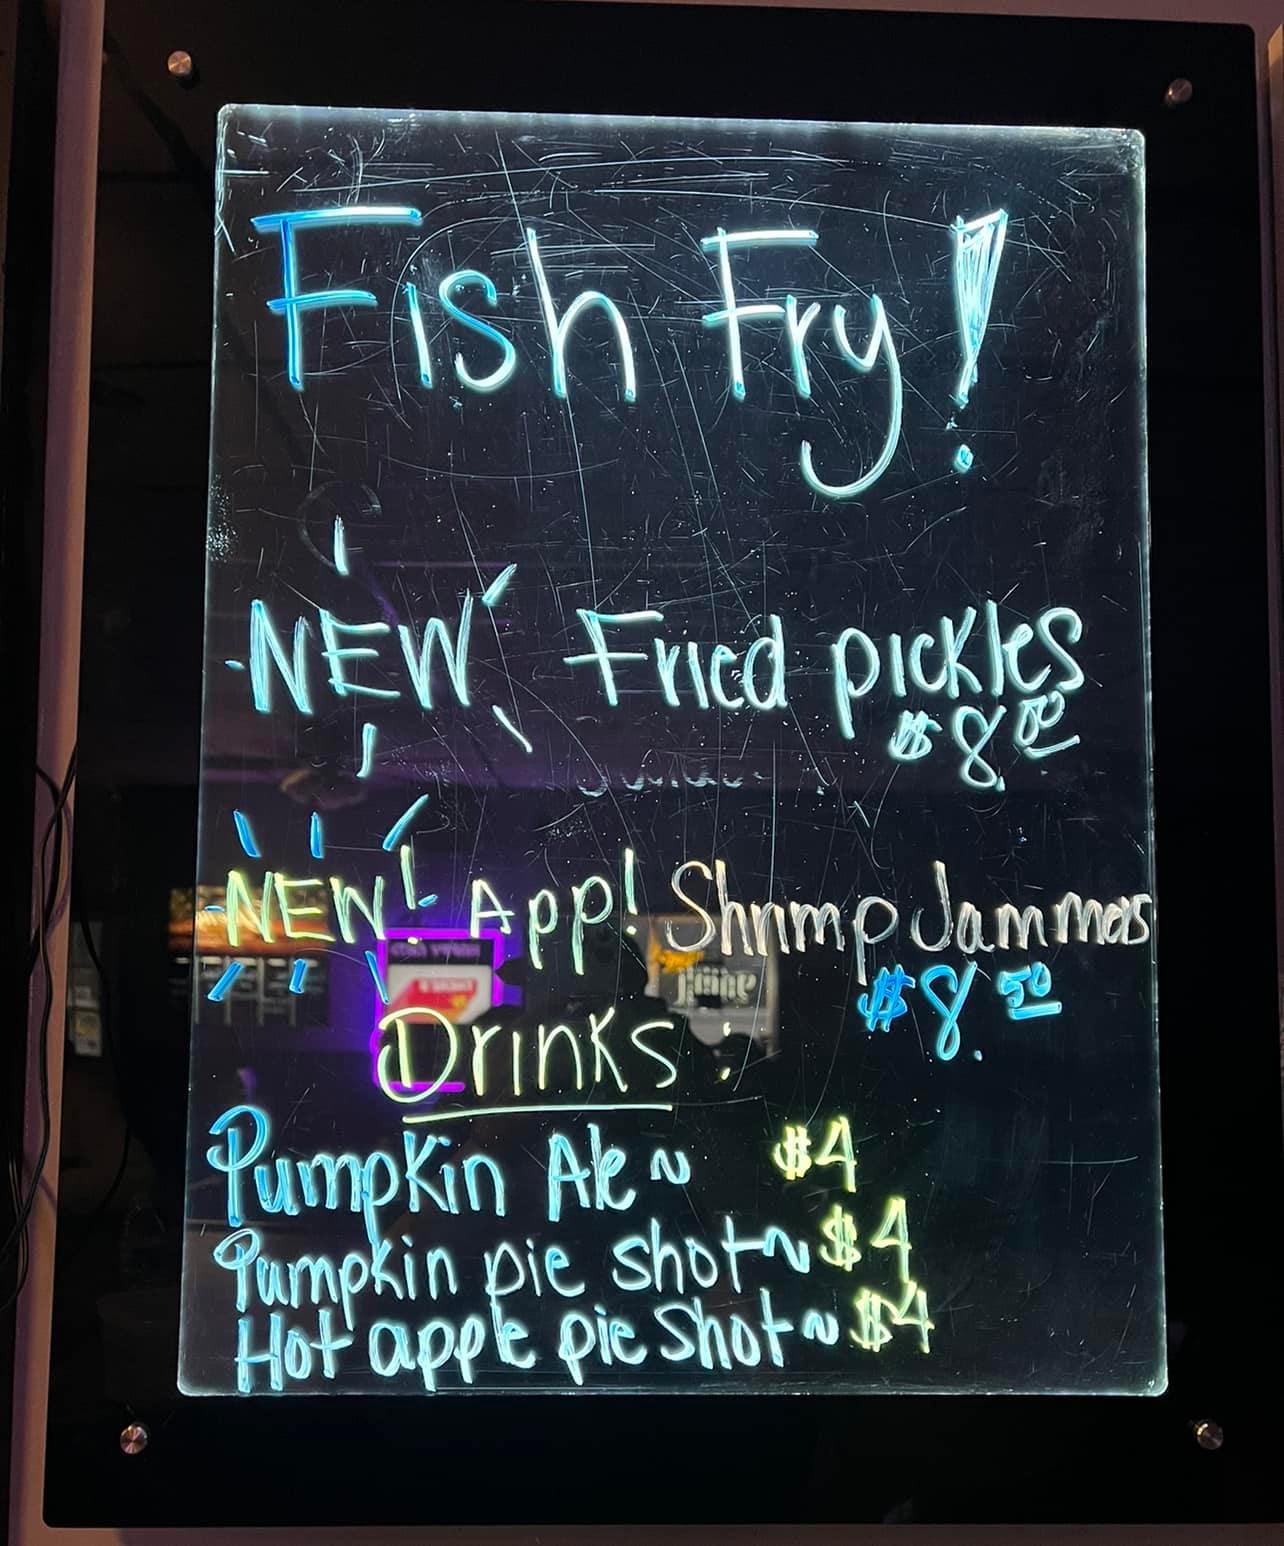 Fish Fry!
NEW Fried pickles
$8.00
NEW! App! Shrimp Jammers
$8.50
Drinks:
Pumpkin Ale ~ $4
Pumpkin pie shot ~ $4
Hot apple pie shot ~ $4